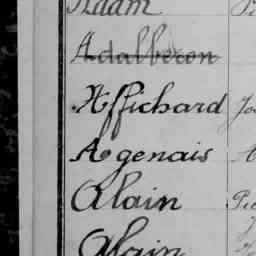 Adam
Adalberon
Affichard
Agenais
Alain
Alain